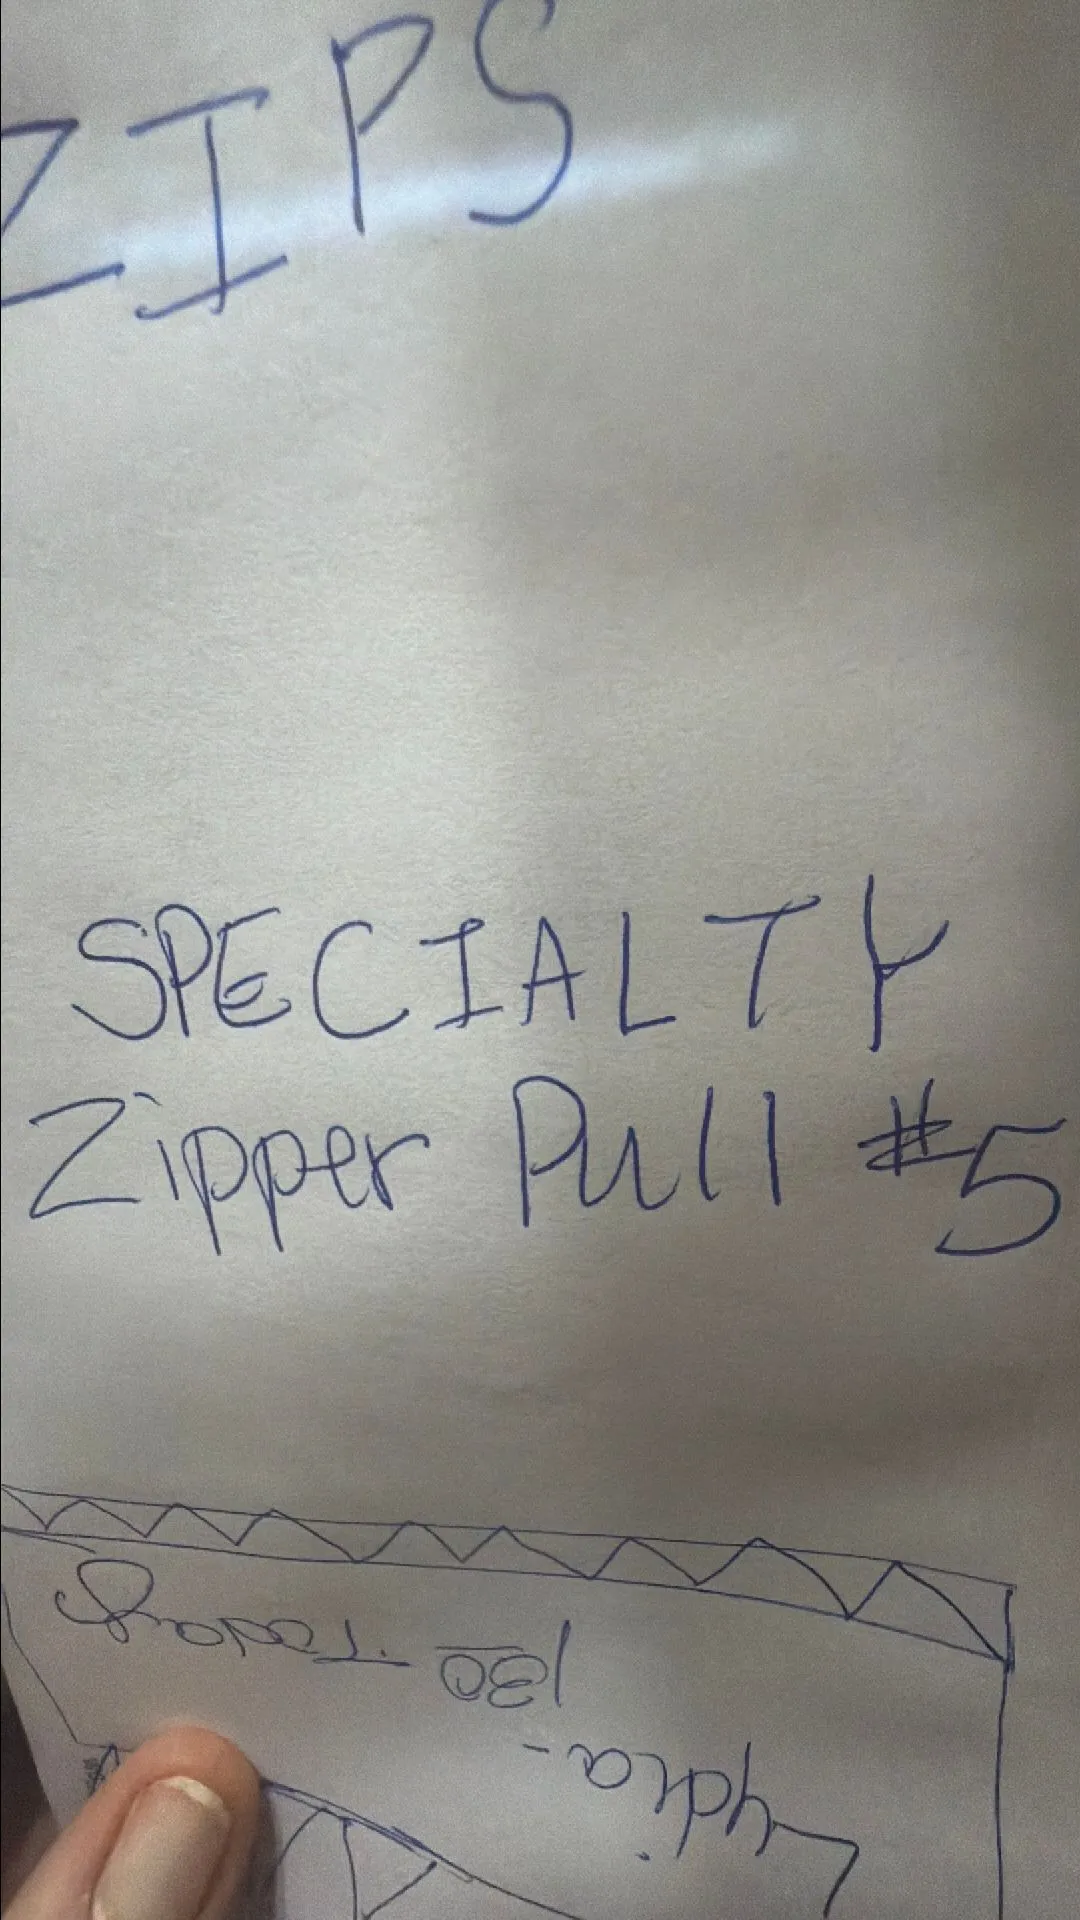 ZIPS
SPECIALTY
Zipper Pull #5
Lydia-
130 Today